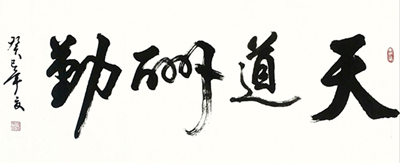 天道酬勤
癸巳年夏